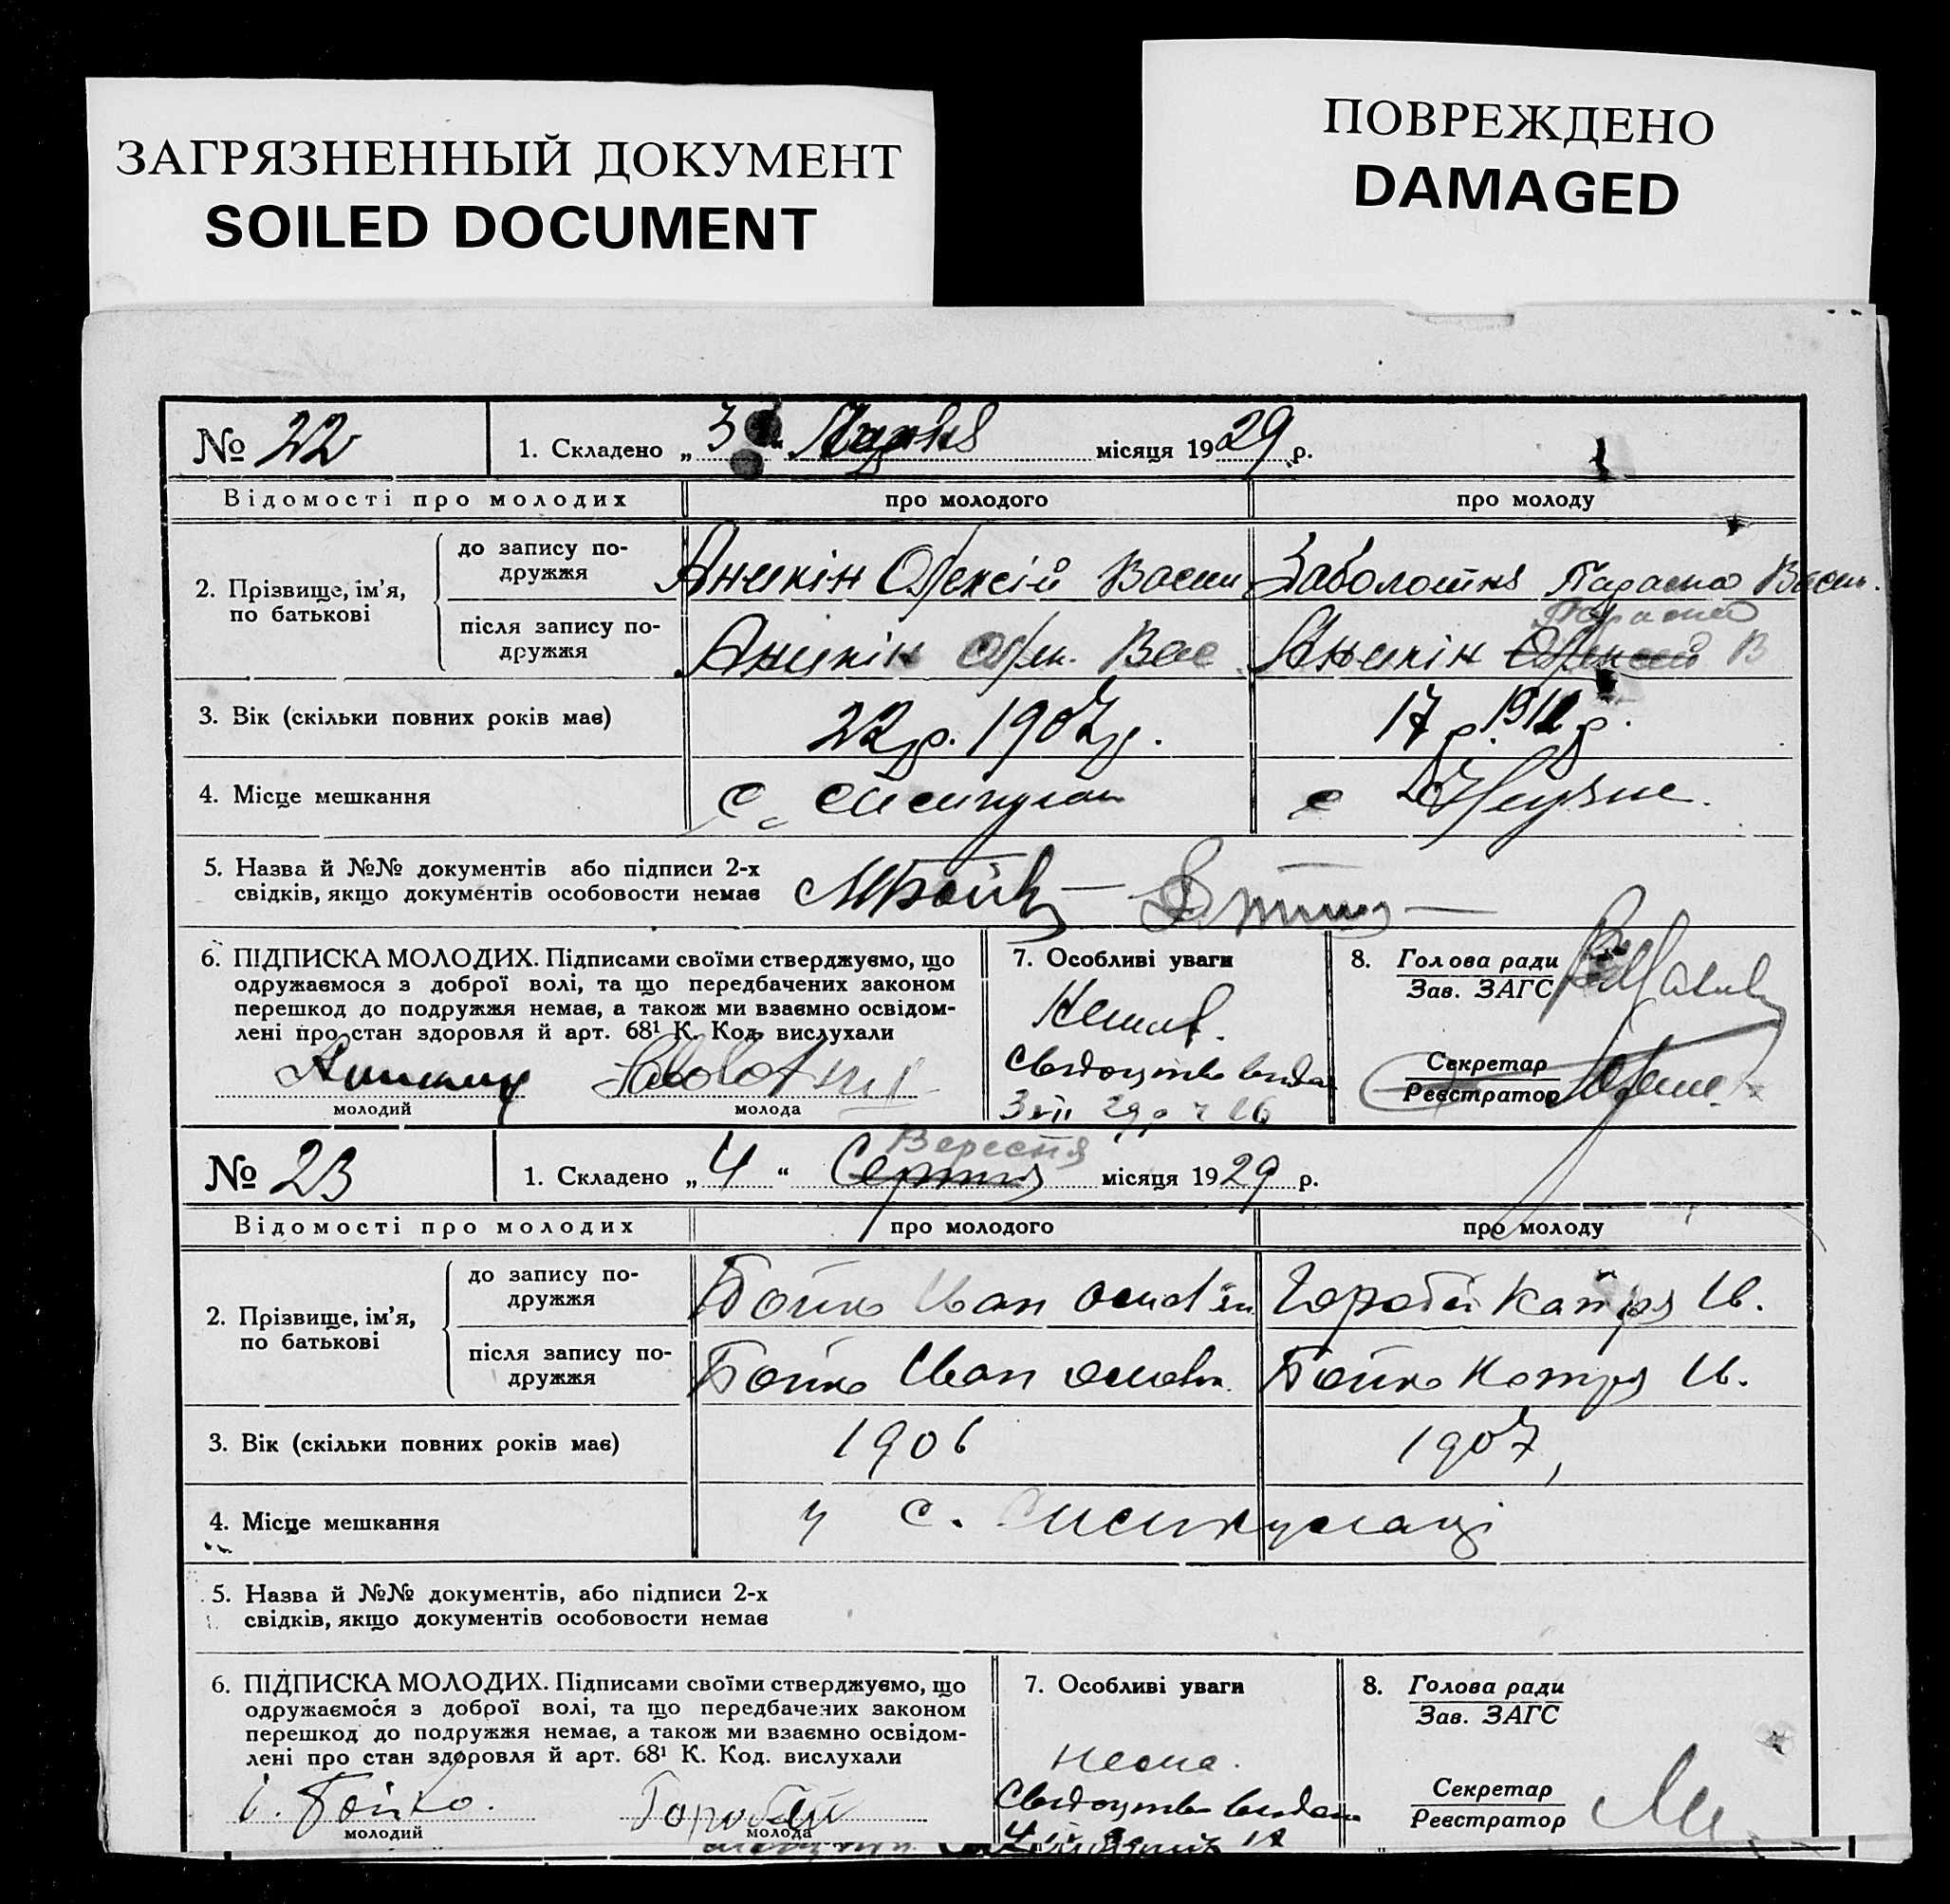 ЗАГРЯЗНЕННЫЙ ДОКУМЕНТ
SOILED DOCUMENT
ПОВРЕЖДЕНО
DAMAGED
№ 22
1. Складено „ 3 “ місяця 1929 р.
Відомості про молодих
про молодого
про молоду
2. Прізвище, ім’я, по батькові
до запису по-
дружжя
Аникін Олексій Васил
Заболотня Параска Васил.
Параска
після запису по-
дружжя
Аникін Олек. Вас
Аникін Олексій В
3. Вік (скільки повних років має)
22 р. 1907 р.
17 р. 1912 р.
4. Місце мешкання
с.
с
5. Назва й №№ документів або підписи 2-х
свідків, якщо документів особовости немає
6. ПІДПИСКА МОЛОДИХ. Підписами своїми стверджуємо, що
одружаємося з доброї волі, та що передбачених законом
перешкод до подружжя немає, а також ми взаємно освідом-
лені про стан здоровля й арт. 68¹ К. Код. вислухали
молодий
молода
7. Особливі уваги
Свідоцтво видан
8. Голова ради
Зав. ЗАГС
Секретар
Реєстратор
Вересня
№ 23
1. Складено „ 4 “ Серпня місяця 1929 р.
Відомості про молодих
про молодого
про молоду
2. Прізвище, ім’я,
по батькові
до запису по-
дружжя
Бойко Иван
Горобей Катря Ив.
після запису по-
дружжя
Бойко Иван
Бойко Катря Ив.
3. Вік (скільки повних років має)
1906
1907,
4. Місце мешкання
у с.
5. Назва й №№ документів, або підписи 2-х
свідків, якщо документів особовости немає
6. ПІДПИСКА МОЛОДИХ. Підписами своїми стверджуємо, що
одружаємося з доброї волі, та що передбачених законом
перешкод до подружжя немає, а також ми взаємно освідом-
лені про стан здоровля й арт. 68¹ К. Код. вислухали
і. Бойко.
молодий
Горобей
молода
7. Особливі уваги
нема.
Свідоцтво видан
8. Голова ради
Зав. ЗАГС
Секретар
Реєстратор